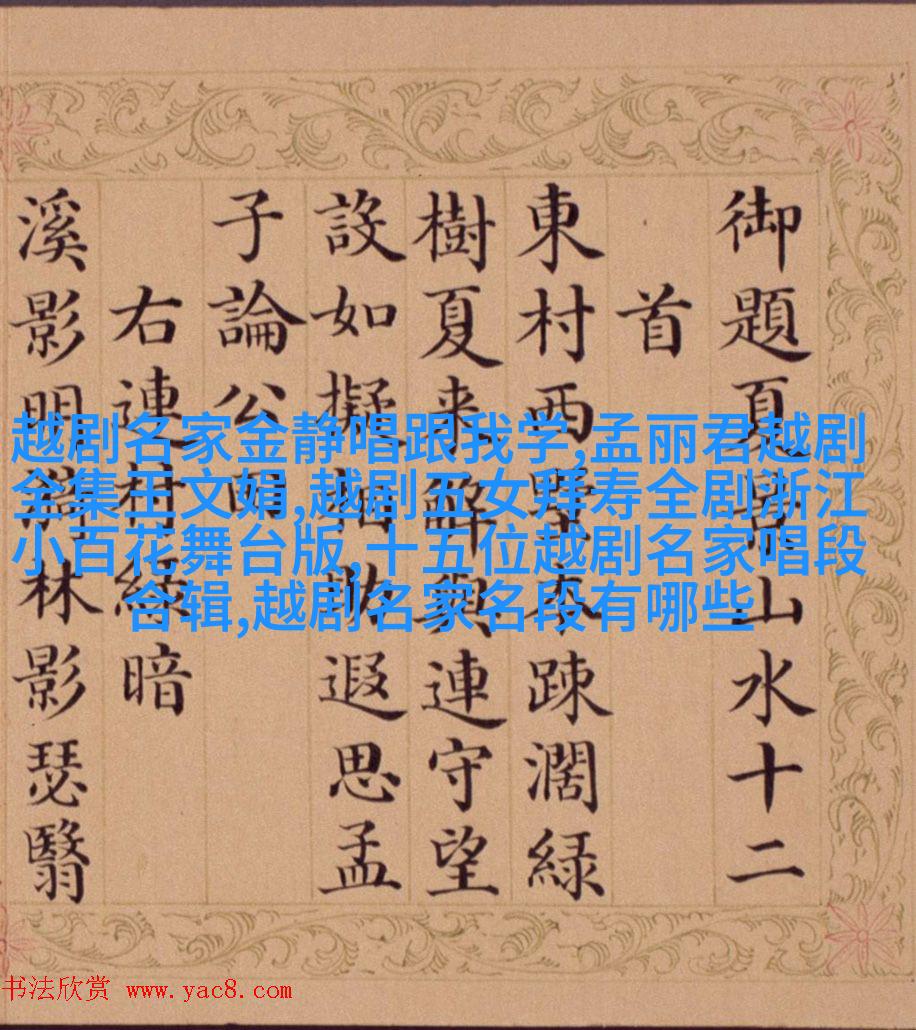 御題夏山水十二
首
東村西野本疎濶緑
樹夏来解與連守望
設如擬相助遐思孟
子論公田
右連村緑暗
溪影明林影瑟翳
越剧名家金静唱跟我学,孟丽君越剧
全集王文娟,越剧五女拜寿全剧浙江
小百花舞台版,十五位越剧名家唱段
合辑,越剧名家名段有哪些
书法欣赏 www.yac8.com